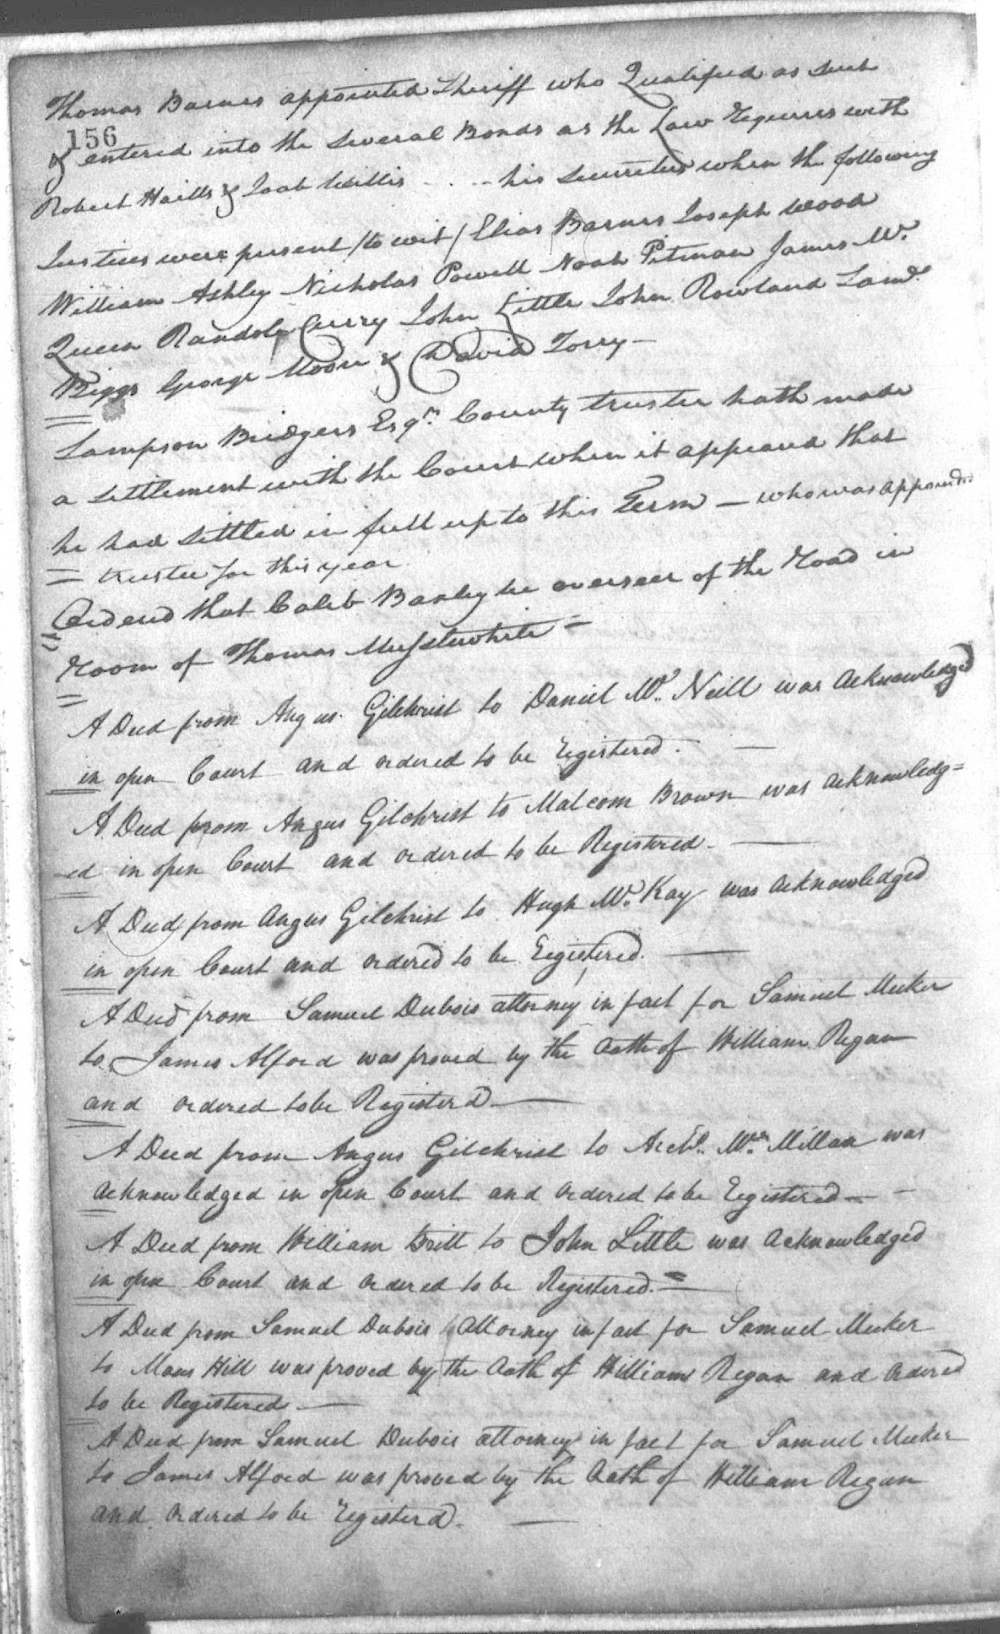 Thomas Barnes appointed Sheriff who Qualifyed as such
156
& entered into the Several Bonds as the Law Requires with
Robert Hails & Joab Willis - - - - his Securities when the following
Justices were present /to wit/ Elias Barnes Joseph Wood
William Ashley Nicholas Powell Noah Pitman James Mc.
Queen Randolp Curry John Little John Rowland
Biggs George Moore & David Torry —
Sampson Bridgers Esqr. County trustee hath made
a Settlement with the Court when it appeared that
he had Settled in full up to this Term — who was appoind
= trustee for this year
Ordered that Caleb be overseer of the Road in
Room of Thomas Musslewhite =
A Deed from Angus Gilchrist to Daniel Mc. Neill was Acknowledged
in open Court and ordered to be Registered. —
A Deed from Angus Gilchrist to Malcom Brown was acknowledg=
=ed in open Court and ordered to be Registered. —
A Deed from Angus Gilchrist to Hugh Mc. Kay was acknowledged
in open Court and ordered to be Registered. —
A Deed from Samuel Dubois attorney in fact for Samuel Meeker
to James Alford was proved by the Oath of William Regan
and ordered to be Registerd —
A Deed from Angus Gilchrist to Archd. Mc. Millan was
acknowledged in open Court and ordered to be Registered — -
A Deed from William Britt to John Little was acknowledged
in open Court and ordered to be Registered. =
A Deed from Samuel Dubois Attorney in fact for Samuel Meeker
to Hill was proved by the Oath of William Regan and ordered
to be Registered —
A Deed from Samuel Dubois attorney in fact for Samuel Meeker
to James Alford was proved by the Oath of William Regan
and ordered to be Registerd. —